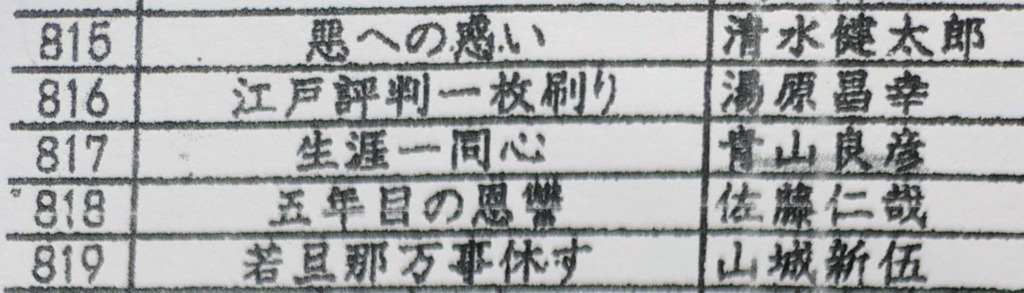 815 悪への惑い 清水健太郎
816 江戸評判一枚刷り 湯原昌幸
817 生涯一同心 青山良彦
818 五年目の恩讐 佐藤仁哉
819 若旦那万事休す 山城新伍